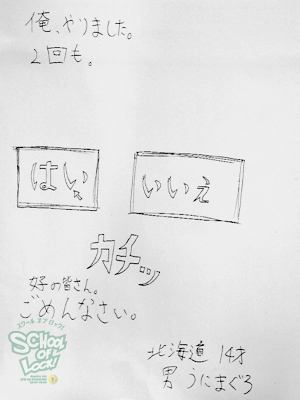 俺、やりました。
2回も。
はい
いいえ
カチッ
好の皆さん。
ごめんなさい。
スクール オブ ロック!
SCHOOL
OF
LOCK!
北海道 14才
男 うにまぐろ